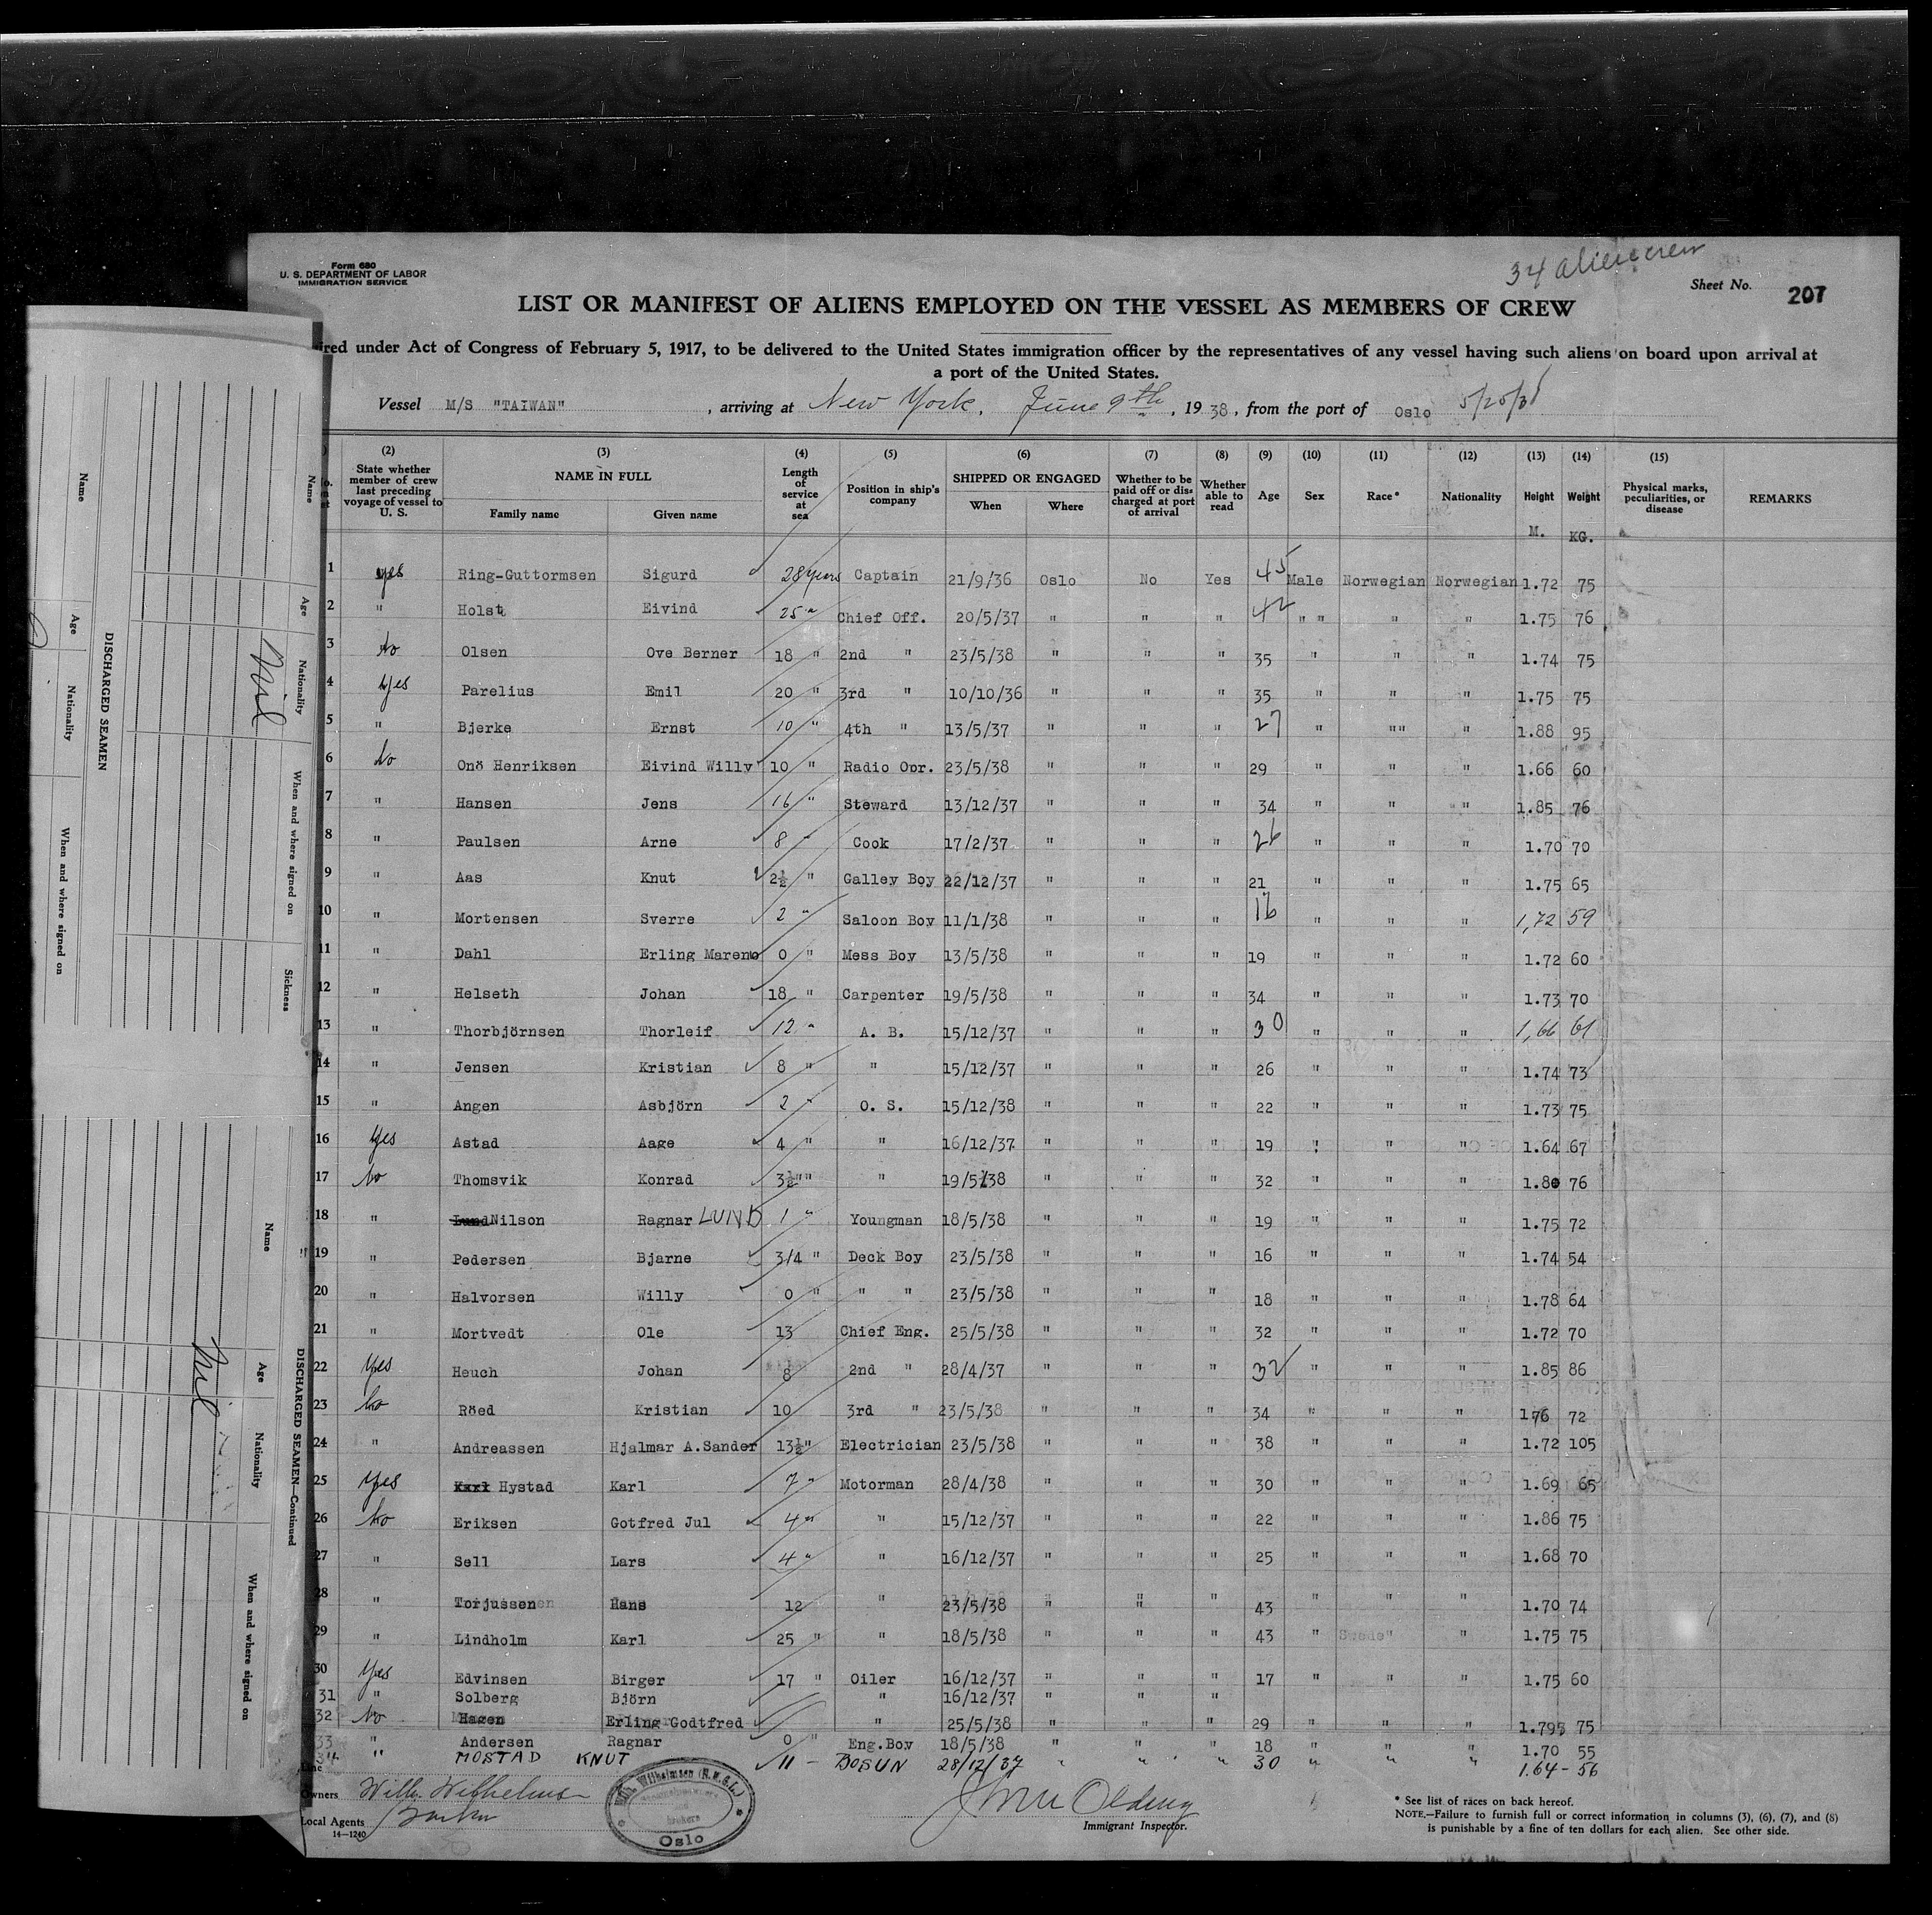 Form 680
U. S. DEPARTMENT OF LABOR
IMMIGRATION SERVICE
34 alien crew
Sheet No. 207
LIST OR MANIFEST OF ALIENS EMPLOYED ON THE VESSEL AS MEMBERS OF CREW
ired under Act of Congress of February 5, 1917, to be delivered to the United States immigration officer by the representatives of any vessel having such aliens on board upon arrival at
a port of the United States.
Vessel M/S "TAIWAN", arriving at New York, June 9th, 1938, from the port of Oslo
(2) (3) (4) (5) (6) (7) (8) (9) (10) (11) (12) (13) (14) (15)
State whether member of crew last preceding voyage of vessel to U. S. NAME IN FULL Family name Given name Length of service at sea Position in ship's company SHIPPED OR ENGAGED When Where Whether to be paid off or discharged at port of arrival Whether able to read Age Sex Race* Nationality Height Weight Physical marks, peculiarities, or disease REMARKS
M. KG.
1 yes Ring-Guttormsen Sigurd 28 years Captain 21/9/36 Oslo No Yes 45 Male Norwegian Norwegian 1.72 75
2 " Holst Eivind 25 " Chief Off. 20/5/37 " " " 42 " " " " 1.75 76
3 No Olsen Ove Berner 18 " 2nd " 23/5/38 " " " 35 " " " 1.74 75
4 Yes Parelius Emil 20 " 3rd " 10/10/36 " " " 35 " " " 1.75 75
5 " Bjerke Ernst 10 " 4th " 13/5/37 " " " 27 " "" " 1.88 95
6 No Onö Henriksen Eivind Willy 10 " Radio Opr. 23/5/38 " " " 29 " " " 1.66 60
7 " Hansen Jens 16 " Steward 13/12/37 " " " 34 " " " 1.85 76
8 " Paulsen Arne 8 " Cook 17/2/37 " " " 26 " " " 1.70 70
9 " Aas Knut 2½ " Galley Boy 22/12/37 " " " 21 " " " 1.75 65
10 " Mortensen Sverre 2 " Saloon Boy 11/1/38 " " " " " " 1,72 59
11 " Dahl Erling Mareno 0 " Mess Boy 13/5/38 " " " 19 " " " 1.72 60
12 " Helseth Johan 18 " Carpenter 19/5/38 " " " 34 " " " 1.73 70
13 " Thorbjörnsen Thorleif 12 " A. B. 15/12/37 " " " 30 " " " 1,66 61
14 " Jensen Kristian 8 " " 15/12/37 " " " 26 " " " 1.74 73
15 " Angen Asbjörn 2 " O. S. 15/12/38 " " " 22 " " " 1.73 75
16 Yes Astad Aage 4 " " 16/12/37 " " " 19 " " " 1.64 67
17 No Thomsvik Konrad 3½ "" " 19/5/38 " " " 32 " " " 1.80 76
18 " Lund Nilson Ragnar LUND 1 " Youngman 18/5/38 " " " 19 " " " 1.75 72
19 " Pedersen Bjarne 3/4 " Deck Boy 23/5/38 " " " 16 " " " 1.74 54
20 " Halvorsen Willy 0 " " " 23/5/38 " " " 18 " " " 1.78 64
21 " Mortvedt Ole 13 Chief Eng. 25/5/38 " " " 32 " " " 1.72 70
22 Yes Heuch Johan 8 2nd " 28/4/37 " " " 32 " " " 1.85 86
23 No Röed Kristian 10 3rd " 23/5/38 " " " 34 " " " 1.76 72
24 " Andreassen Hjalmar A.Sander 13½ " Electrician 23/5/38 " " " 38 " " " 1.72 105
25 Yes Karl Hystad Karl 7 " Motorman 28/4/38 " " " 30 " " " 1.69 65
26 No Eriksen Gotfred Jul 4 " " 15/12/37 " " " 22 " " " 1.86 75
27 " Sell Lars 4 " " 16/12/37 " " " 25 " " " 1.68 70
28 " Torjussen Hans 12 " 23/5/38 " " " 43 " " " 1.70 74
29 " Lindholm Karl 25 " " 18/5/38 " " " 43 " Swede " " 1.75 75
30 Yes Edvinsen Birger 17 " Oiler 16/12/37 " " " 17 " " " 1.75 60
31 " Solberg Björn " 16/12/37 " " "
32 No Hagen Erling Godtfred " 25/5/38 " " " 29 " " " 1.795 75
33 " Andersen Ragnar 0 " Eng.Boy 18/5/38 " " " 18 " " " 1.70 55
34 " MOSTAD KNUT 11 - BOSUN 28/12/37 " " " 30 " " " 1.64 - 56
Line
Owners Wilh. Wilhelmsen
Local Agents Barber
14—1240
Wilh. Wilhelmsen
Oslo
Immigrant Inspector.
* See list of races on back hereof.
NOTE.—Failure to furnish full or correct information in columns (3), (6), (7), and (8)
is punishable by a fine of ten dollars for each alien. See other side.
DISCHARGED SEAMEN
Name Age Nationality When and where signed on
Name Age Nationality When and where signed on Sickness
Nil
DISCHARGED SEAMEN—Continued
Name Age Nationality When and where signed on
Nil